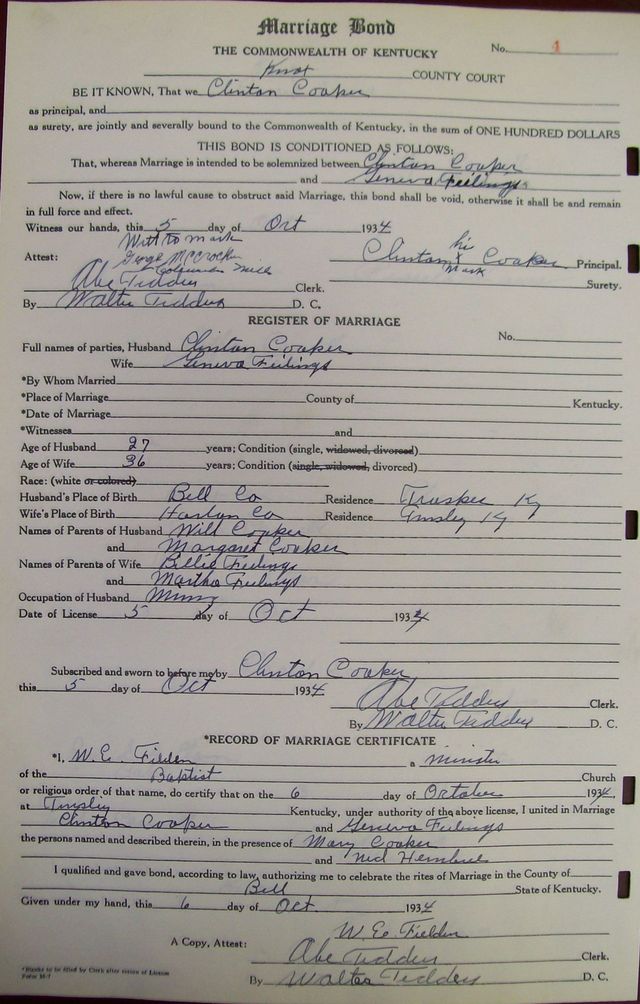 Marriage Bond
THE COMMONWEALTH OF KENTUCKY
No. 1
Knox COUNTY COURT
BE IT KNOWN, That we Clinton Cooker
as principal, and
as surety, are jointly and severally bound to the Commonwealth of Kentucky, in the sum of ONE HUNDRED DOLLARS
THIS BOND IS CONDITIONED AS FOLLOWS:
That, whereas Marriage is intended to be solemnized between Clinton Cooker
and Geneva Feilings
Now, if there is no lawful cause to obstruct said Marriage, this bond shall be void, otherwise it shall be and remain
in full force and effect.
Witness our hands, this 5 day of Oct 1934
With to mark
Attest: George McCrocken
Clinton his x mark Cooker Principal.
Surety.
Abe Tedders Clerk.
By Walter Tedders D. C.
REGISTER OF MARRIAGE
No.
Full names of parties, Husband Clinton Cooker
Wife Geneva Feilings
*By Whom Married
*Place of Marriage County of Kentucky.
*Date of Marriage
*Witnesses and
Age of Husband 27 years; Condition (single, widowed, divorced)
Age of Wife 36 years; Condition (single, widowed, divorced)
Race: (white or colored)
Husband's Place of Birth Bell Co Residence Trosper Ky
Wife's Place of Birth Harlan Co Residence Tinsley Ky
Names of Parents of Husband Will Cooker
and Margaret Cooker
Names of Parents of Wife Billie Feilings
and Martha Feilings
Occupation of Husband Mining
Date of License 5 day of Oct 1934
Subscribed and sworn to before me by Clinton Cooker
this 5 day of Oct 1934 Abe Tedders Clerk.
By Walter Tedders D. C.
*RECORD OF MARRIAGE CERTIFICATE
*I, W. E. Fielden a minister
of the Baptist Church
or religious order of that name, do certify that on the 6 day of October 1934
at Tinsley Kentucky, under authority of the above license, I united in Marriage
Clinton Cooker and Geneva Feilings
the persons named and described therein, in the presence of Mary Cooker
and Ned Hembree
I qualified and gave bond, according to law, authorizing me to celebrate the rites of Marriage in the County of
Bell State of Kentucky.
Given under my hand, this 6 day of Oct. 1934
W. E. Fielden
A Copy, Attest: Abe Tedders Clerk.
By Walter Tedders D. C.
*Blanks to be filled by Clerk after return of License